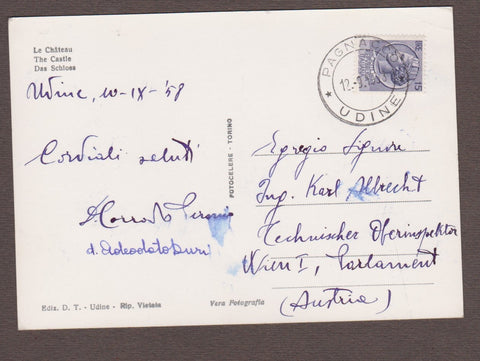 Le Château
The Castle
Das Schloss
Udine, 10-IX-'58
Cordiali saluti
d. Adeodato
FOTOCELERE - TORINO
PAGNACCO
12.-9.
UDINE
15
Egregio Signore
Ing. Karl Albrecht
Technischer Oberinspektor
Wien I, Parlament
(Austria)
Ediz. D. T. - Udine - Rip. Vietata
Vera Fotografia